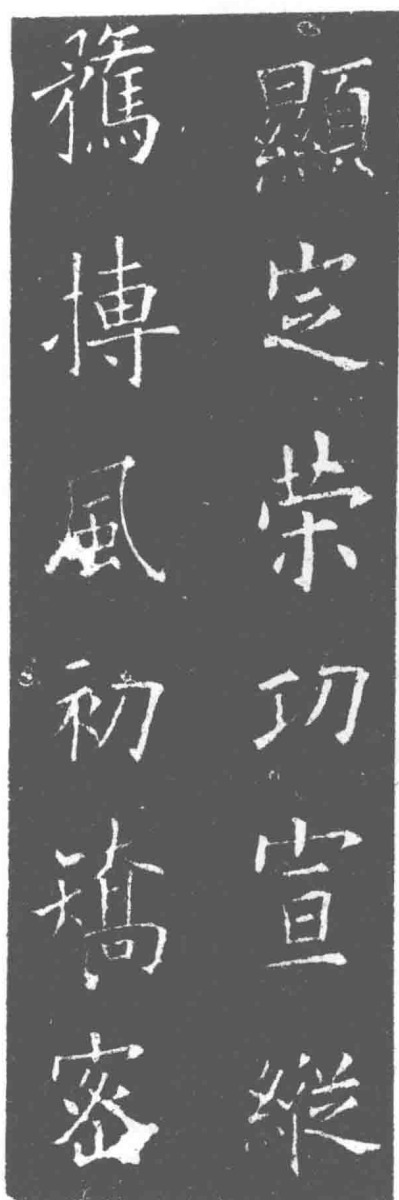 顯定榮功宣縱
鶩摶風初矯密